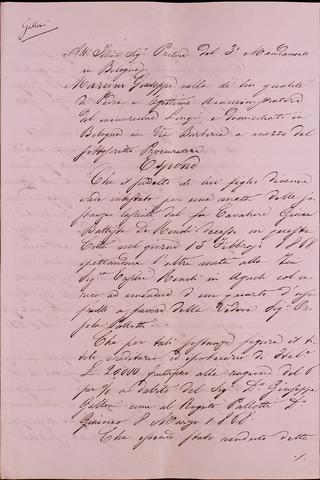 Galloni
All' Ill.mo Sig.r Pretore del 3° Mandamento
in Bologna
Marcini Giuseppe nella di lui qualità
di Padre e legittimo Amministratore
del minorenne Luigi e domiciliato in
Bologna in Via Barberia a mezzo del
sottoscritto Procuratore
Espone
Che il predetto di lui figlio divenne
erede per una metà delle so-
stanze del fu Cavaliere Giovan
Battista De decesso in questa
Città nel giorno 15 Febbrajo 1868
spettandone l'altra metà alla Zia
Sig.ra in col ca-
rico ad d'un quarto d'usu-
frutto a favore della Vedova Sig.ra
Pallotti
Che per tali sostanze figura il ti-
tolo creditorio ed ipotecario di Ital.e
£ 20,000 fruttifero alla ragione del 6
per % a debito del Sig.r D.r Giuseppe
Galloni come al Rogito Pallotti D.r
Giacomo 8 Marzo 1866
Che essendo stato venduto detto